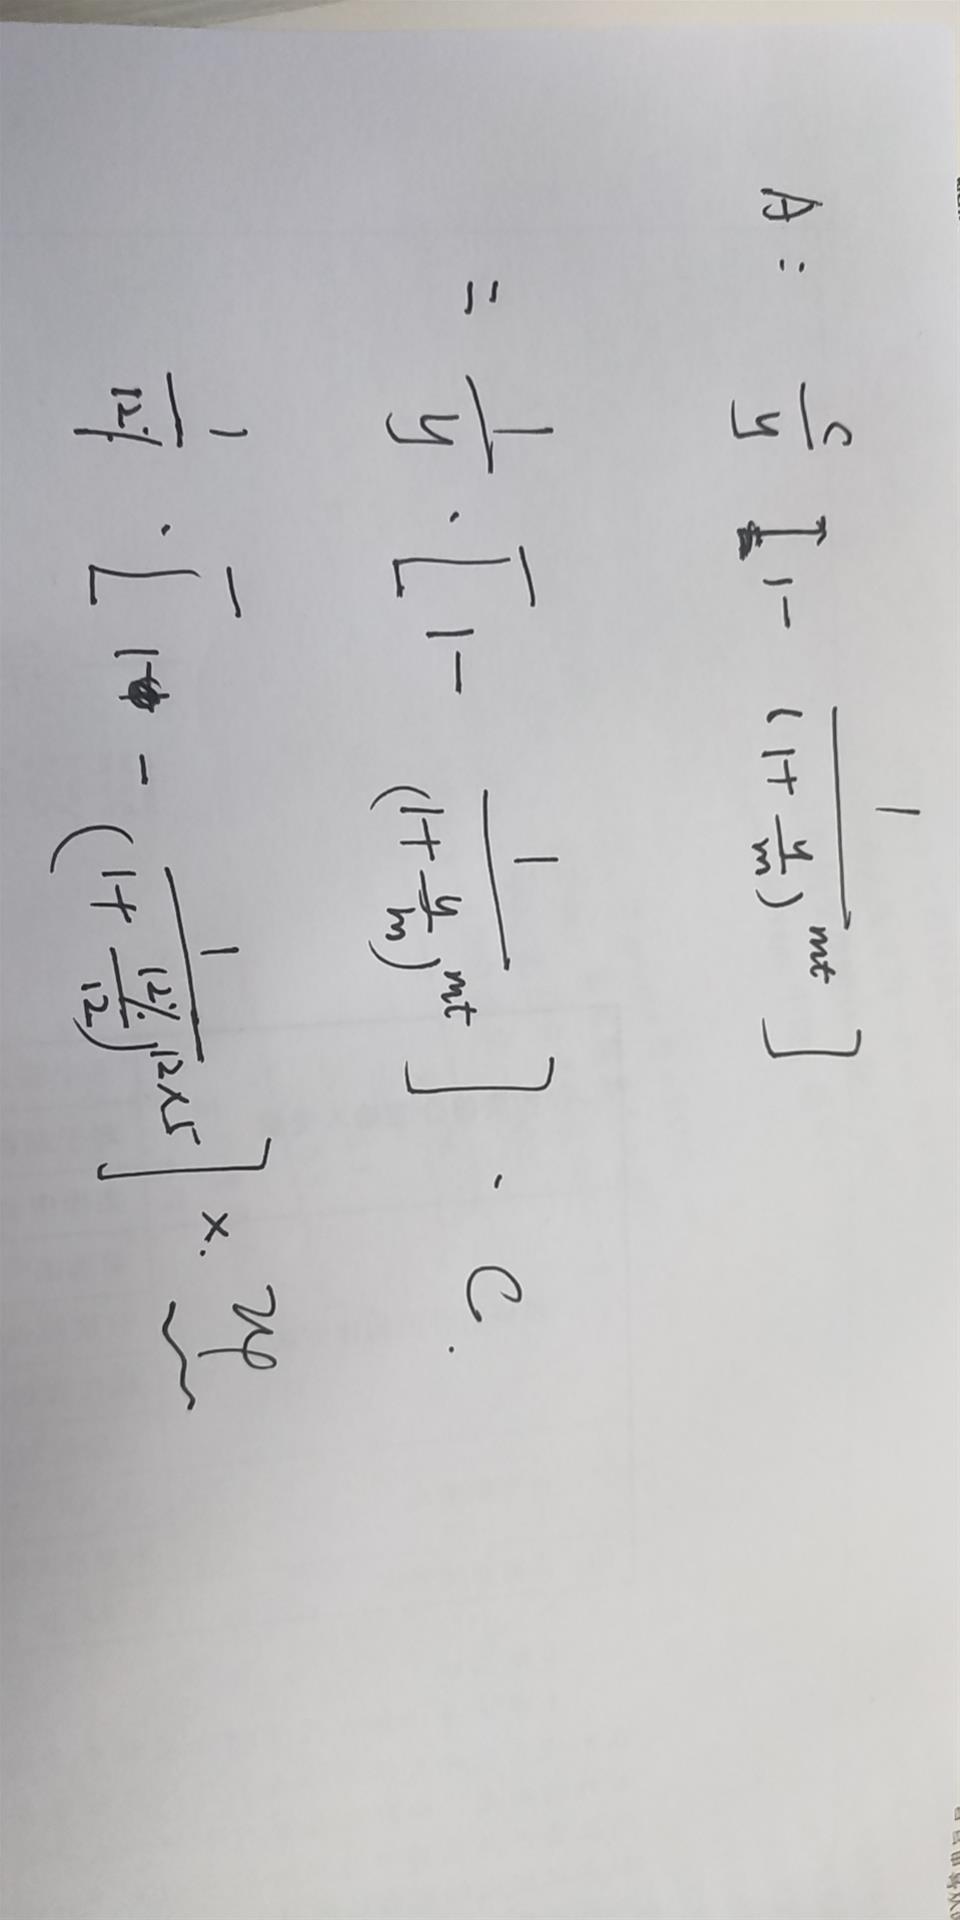 A: c/y [1 - 1/(1+y/m)^mt]
= 1/y · [1 - 1/(1+y/m)^mt] · C.
1/12% · [1 - 1/(1+12%/12)^12×5] ×.